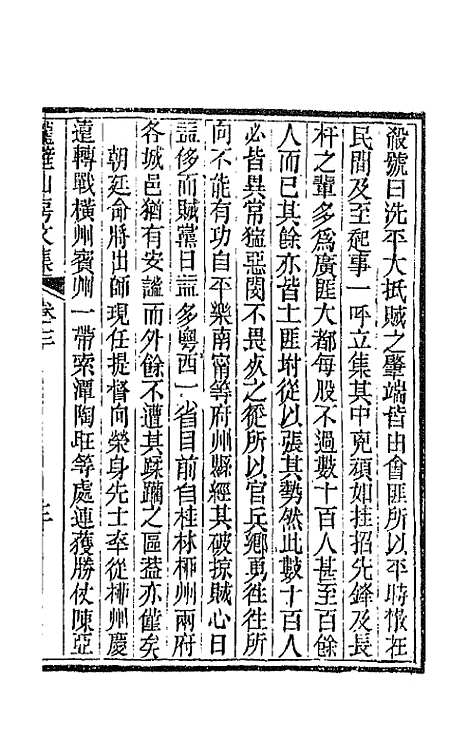 殺號曰洗平大抵賊之肇端皆由會匪所以平時散在
民間及至起事一呼立集其中兇頑如拄招先鋒及長
杆之輩多為廣匪大都每股不過數十百人甚至百餘
人而已其餘亦皆土匪坿從以張其勢然此數十百人
必皆異常猛惡閔不畏死之從所以官兵鄉勇往往所
向不能有功自平樂南甯等府州縣經其破掠賊心日
益侈而賊黨日益多粵西一省目前自桂林柳州兩府
各城邑猶有安謐而外餘不遭其蹂躪之區葢亦僅矣
朝廷命將出師現任提督向榮身先士卒從柳州慶
遠轉戰橫州賓州一帶索潭陶旺等處連獲勝仗陳亞
山房文集 卷十三